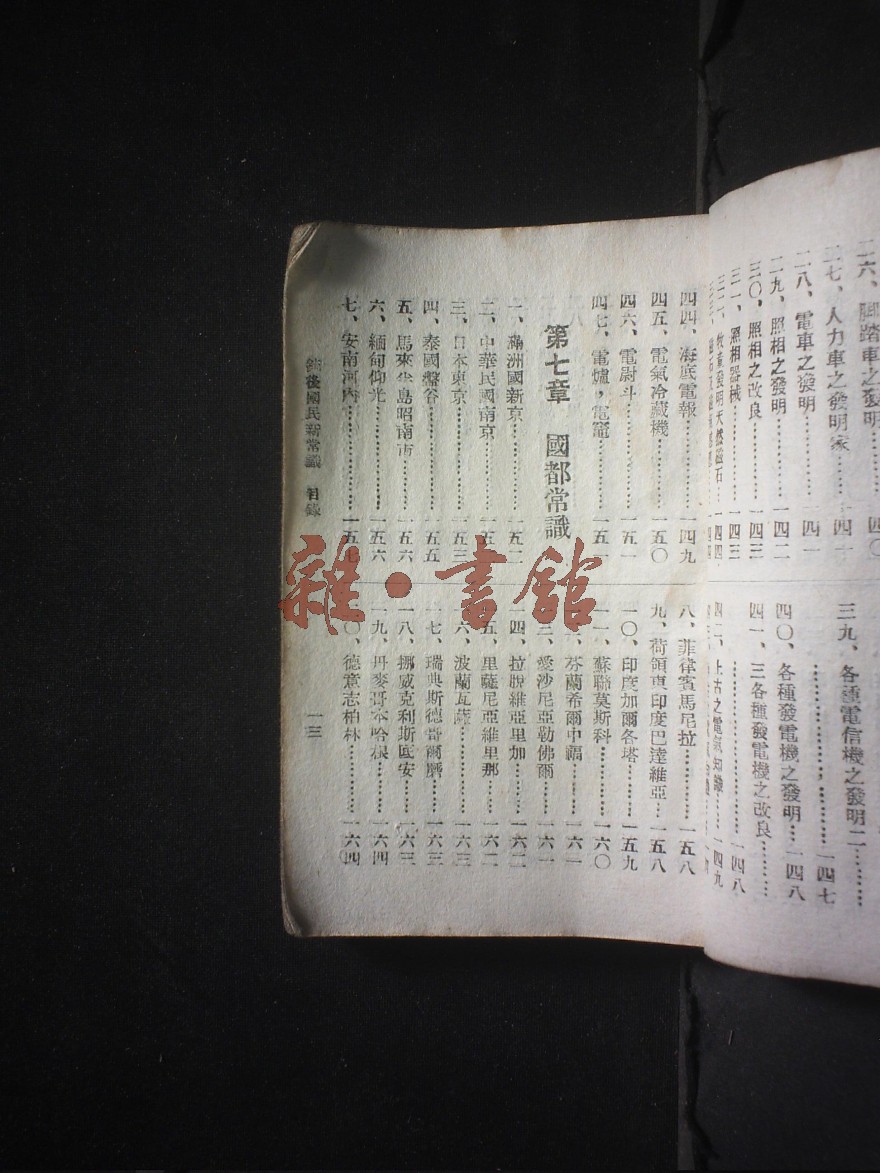 二七、人力車之發明家……一四一
二八、電車之發明……一四一
二九、照相之發明……一四二
三〇、照相之改良……一四三
三一、照相器械……一四三
三九、各種電信機之發明二……
……一四七
四〇、各種發電機之發明……一四八
四一、三各種發電機之改良……
……一四八
四二、上古之電氣知識……一四九
四四、海底電報……一四九
四五、電氣冷藏機……一五〇
四六、電尉斗……一五一
四七、電爐，電竈……一五一
第七章 國都常識
一、滿洲國新京……一五二
二、中華民國南京……一五
三、日本東京……一五三
四、泰國盤谷……一五五
五、馬來半島昭南市……一五六
六、緬甸仰光……一五六
七、安南河內……一五七
八、菲律賓馬尼拉……一五八
九、荷領東印度巴達維亞……一五八
一〇、印度加爾各塔……一五九
一一、蘇聯莫斯科……一六〇
芬蘭希爾中福……一六一
三、愛沙尼亞勒佛爾……一六一
一四、拉脫維亞里加……一六二
五、里薩尼亞維里那……一六二
六、波蘭瓦薩……一六三
一七、瑞典斯德哥爾臍……一六三
一八、挪威克利斯底安……一六三
一九、丹麥哥本哈根……一六四
〇、德意志柏林……一六四
後國民新常識 目錄
一三
雜·書館